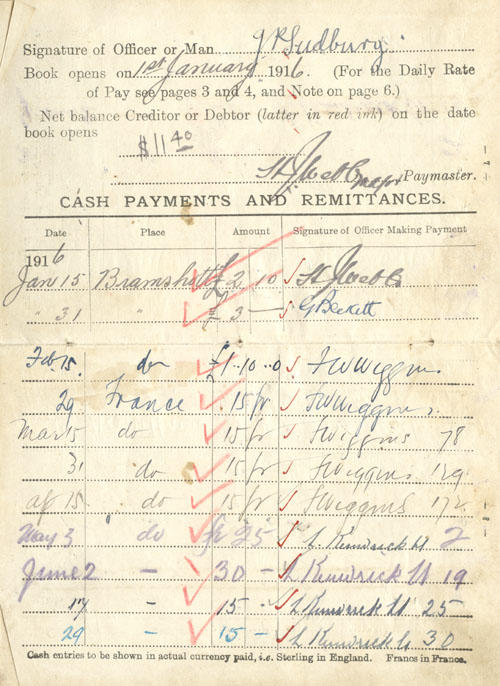 Signature of Officer or Man J R Sudbury
Book opens on 1st January 1916. (For the Daily Rate
of Pay see pages 3 and 4, and Note on page 6.)
Net balance Creditor or Debtor (latter in red ink) on the date
book opens
$11 40
Major Paymaster.
CASH PAYMENTS AND REMITTANCES.
Date Place Amount Signature of Officer Making Payment
1916
Jan 15 Bramshott £2 10
" 31 " £3 — G Beckett
Feb. 15. do £1..10..0 FW Wiggins
29 France 15 fr FW Wiggins.
Mar 15 do 15 fr F Wiggins 78
31 do 15 fr F Wiggins 129
Ap 15 do 15 fr F Wiggins 172
May 3 do fr 25 L Kendrick Lt 2
June 2 — 30 — L Kendrick Lt 19
17 — 15 - L Kendrick Lt 25
29 — 15 — L Kendrick Lt 30
Cash entries to be shown in actual currency paid, i.e. Sterling in England. Francs in France.